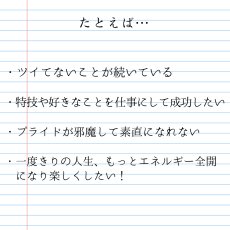 たとえば…
・ツイてないことが続いている
・特技や好きなことを仕事にして成功したい
・プライドが邪魔して素直になれない
・一度きりの人生、もっとエネルギー全開
になり楽しくしたい！